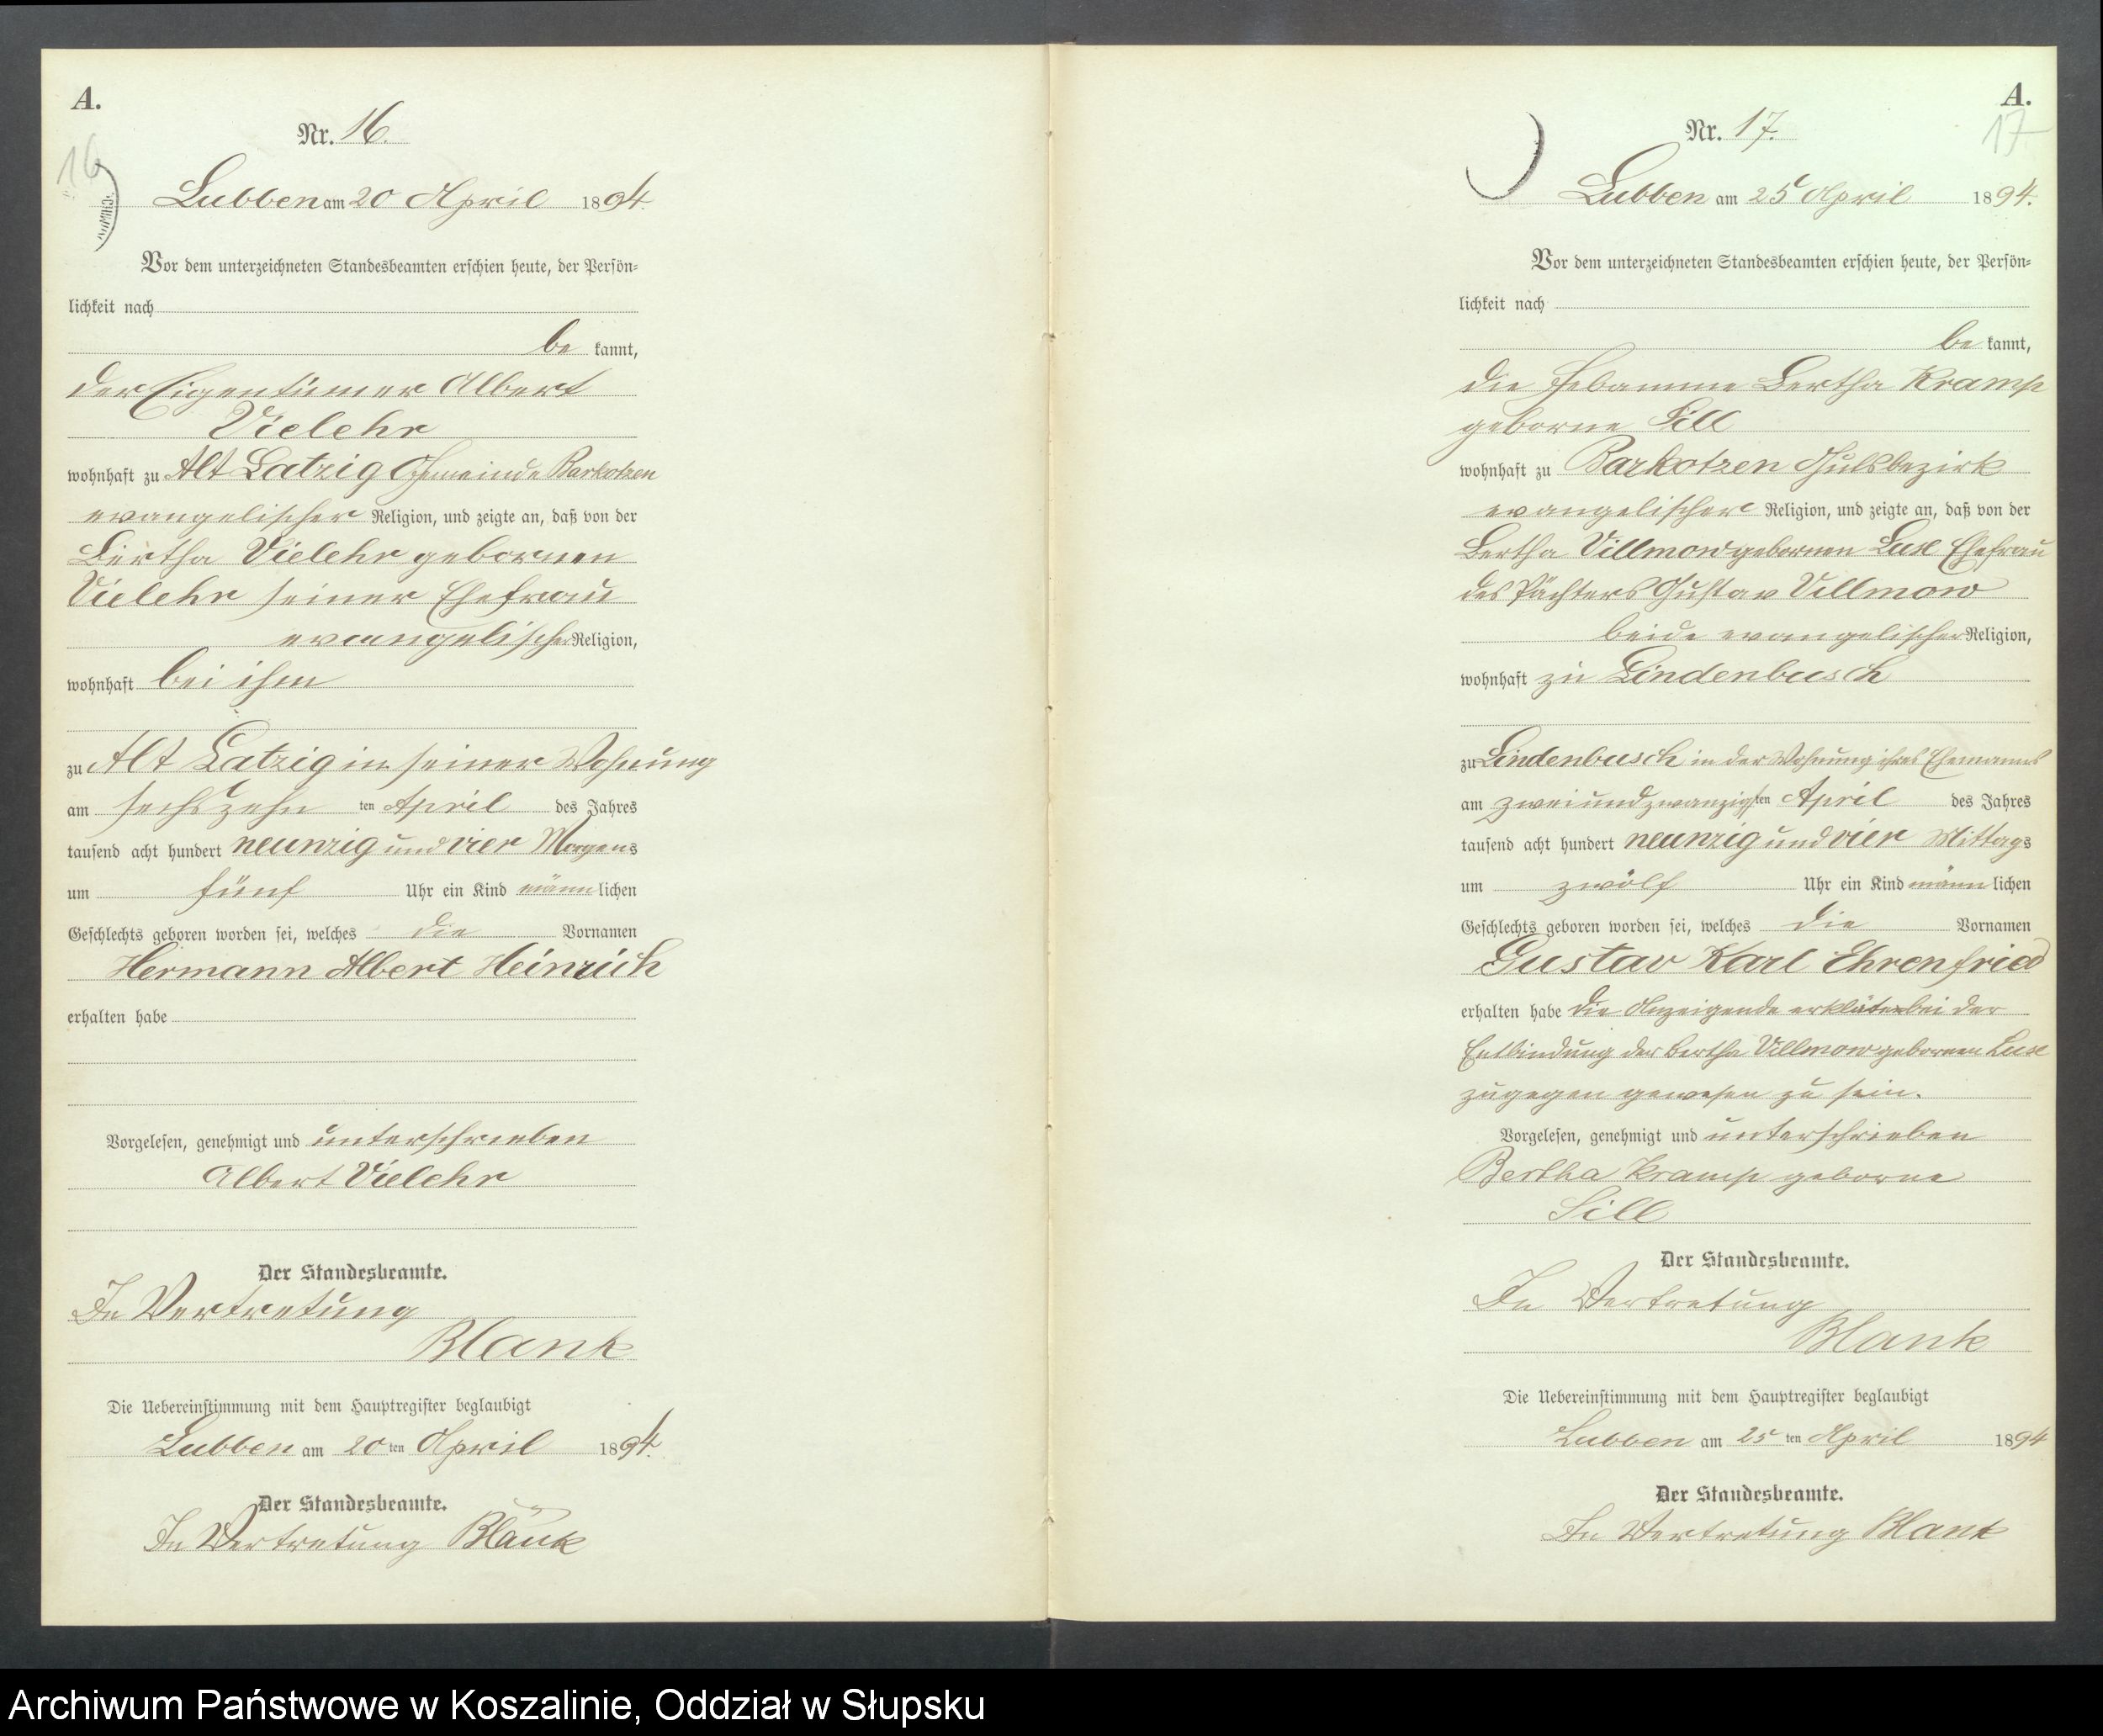 A.
16
Nr. 16.
Lubben am 20 April 1894.
Vor dem unterzeichneten Standesbeamten erschien heute, der Persön-
lichkeit nach
be kannt,
der Eigentümer Albert
Vielehr
wohnhaft zu Alt Latzig Gemeinde Barkotzen
evangelischer Religion, und zeigte an, daß von der
Bertha Vielehr gebornen
Vielehr seiner Ehefrau
evangelischer Religion,
wohnhaft bei ihm
zu Alt Latzig in seiner Wohnung
am sechszehn ten April des Jahres
tausend acht hundert neunzig und vier Morgens
um fünf Uhr ein Kind männ lichen
Geschlechts geboren worden sei, welches die Vornamen
Hermann Albert Heinrich
erhalten habe
Vorgelesen, genehmigt und unterschrieben
Albert Vielehr
Der Standesbeamte.
In Vertretung
Blank
Die Uebereinstimmung mit dem Hauptregister beglaubigt
Lubben am 20 ten April 1894.
Der Standesbeamte.
In Vertretung Blank
A.
17
Nr. 17.
Lubben am 25 April 1894.
Vor dem unterzeichneten Standesbeamten erschien heute, der Persön-
lichkeit nach
be kannt,
die Hebamme Bertha Kramp
geborne Sill
wohnhaft zu Barkotzen Gutsbezirk
evangelischer Religion, und zeigte an, daß von der
Bertha Villmow gebornen Luse Ehefrau
des Pächters Gustav Villmow
beide evangelischer Religion,
wohnhaft zu Lindenbusch
zu Lindenbusch in der Wohnung ihres Ehemanns
am zweiundzwanzigsten April des Jahres
tausend acht hundert neunzig und vier Mittags
um zwölf Uhr ein Kind männ lichen
Geschlechts geboren worden sei, welches die Vornamen
Gustav Karl Ehrenfried
erhalten habe die Anzeigende erkläte bei der
Entbindung der Bertha Villmow gebornen Luse
zugegen gewesen zu sein.
Vorgelesen, genehmigt und unterschrieben
Bertha Kramp geborne
Sill
Der Standesbeamte.
In Vertretung
Blank
Die Uebereinstimmung mit dem Hauptregister beglaubigt
Lubben am 25 ten April 1894
Der Standesbeamte.
In Vertretung Blank
Archiwum Państwowe w Koszalinie, Oddział w Słupsku